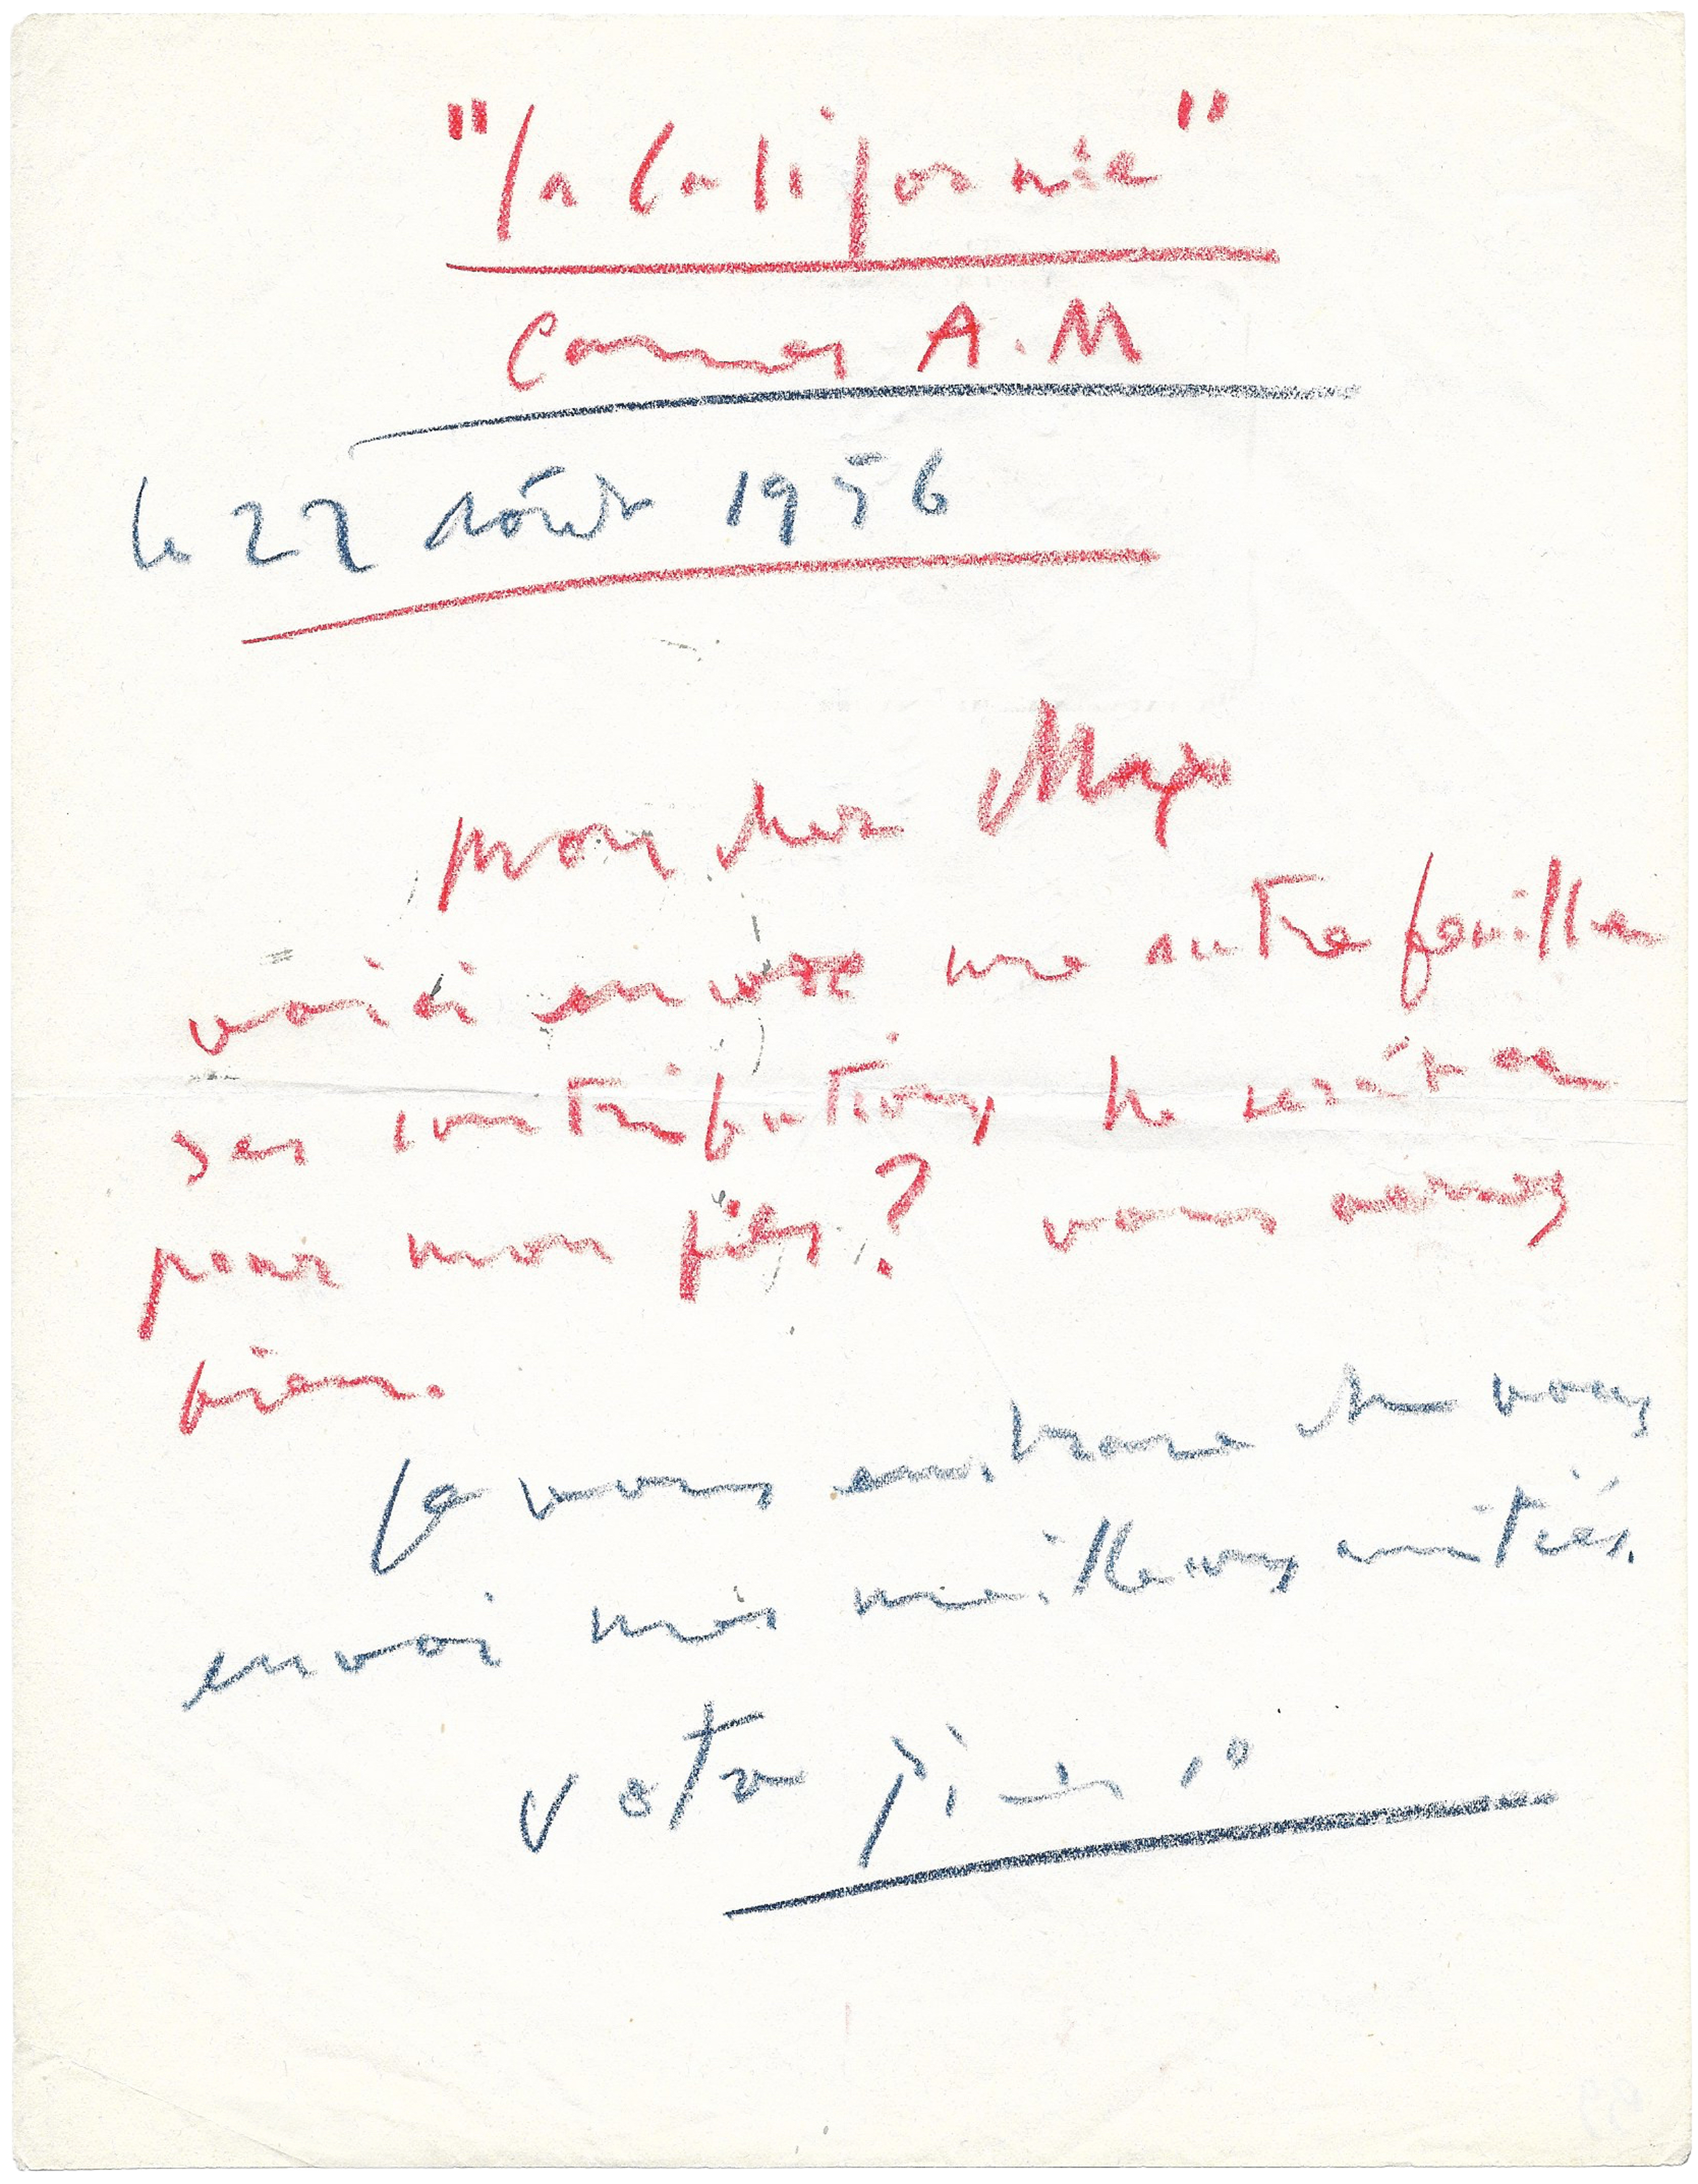 "la Californie"
Cannes A.M
le 22 Août 1956
mon cher Max
voici encore une autre feuille
des contributions
pour mon fils? vous
bien.
Je vous embrasse vous
envoi mes meilleures amitiés.
votre Picasso